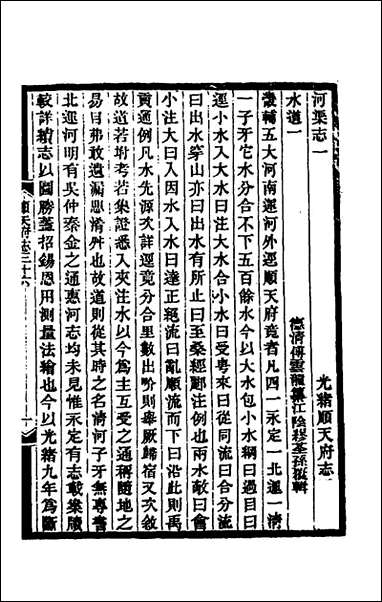 光緒順天府志
河渠志一
水道一
德清傅雲龍纂江陰繆荃孫覆輯
畿輔五大河南運河外逕順天府竟者凡四一永定一北運一清
一子牙它水分合不下五百餘水今以大水包小水綱曰過目曰
逕小水入大水曰注大水合小水曰受粵來曰從同流曰合分流
曰出水穿山亦曰出水有所止曰至桑經酈注例也兩水敵曰會
小注大曰入因水入水曰達正絕流曰亂順流而下曰沿此則禹
貢通例凡水先源次詳逕竟分合里數出畍則舉厥歸宿又次敘
故道若坿考若集證悉入夾注水以今為主互受之通稱隨地之
易目弗敢遺漏慁淆舛也故道則從其時之名清河子牙無專書
北運河明有吳仲秦金之通惠河志均未見惟永定有志載案牘
較詳續志以圖勝蓋招錫恩用測量法繪也今以光緒九年為斷
順天府志三十六
一